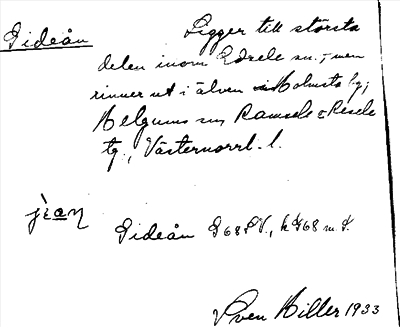 Gideån
Ligger till största
delen inom Edsele sn.; men
rinner ut i älven i Holmsta by;
Helgums sn, Ramsele o Resele
tg., Västernorrl. l.
Gideån G68 SV., h G68 m.
Sven Hiller 1933